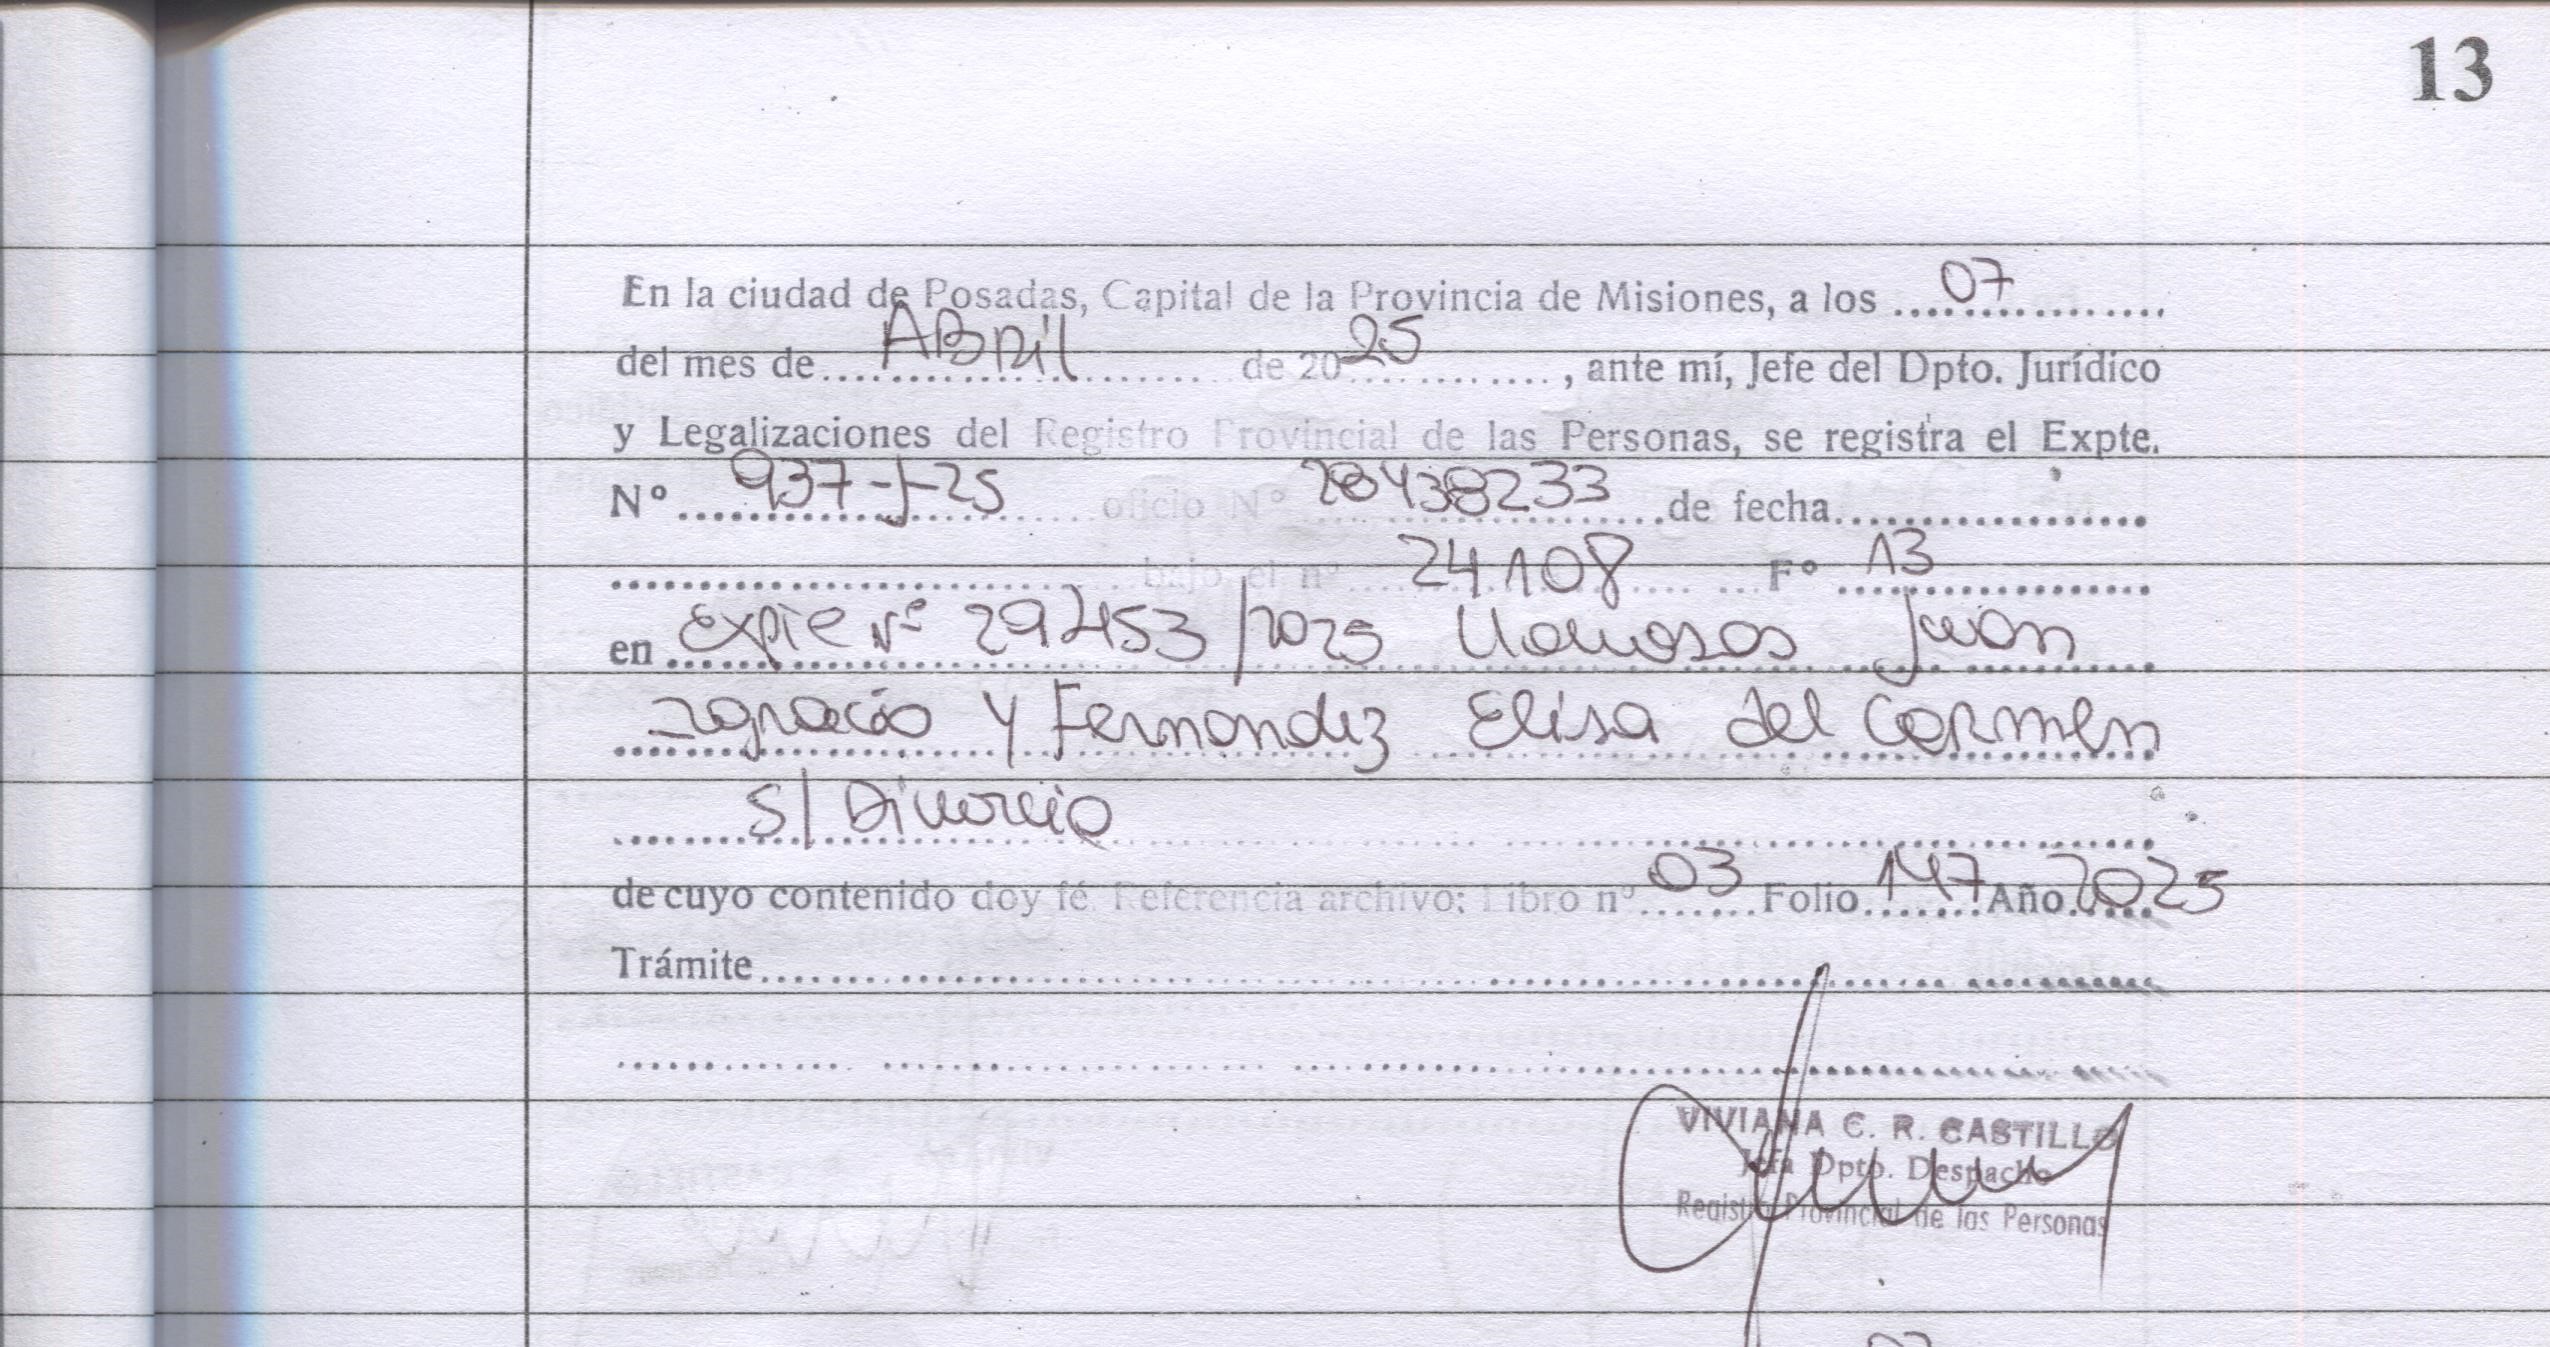 13
En la ciudad de Posadas, Capital de la Provincia de Misiones, a los ....07............
del mes de....ABRil.............. de 20 25 ............, ante mí, Jefe del Dpto. Jurídico
y Legalizaciones del Registro Provincial de las Personas, se registra el Expte.
Nº ....937-J-25........ oficio Nº 28438233 ........de fecha..................
.............................. bajo el nº ....24.108.... Fº ..13..............
en Expte Nº 29453/2025 Juan
Ignacio y Fernandez Elisa del Carmen
s/ Divorcio
de cuyo contenido doy fé. Referencia archivo: Libro nº 03 Folio 147 Año 2025
Trámite............................................................
VIVIANA C. R. CASTILLO
Jefa Dpto. Despacho
Registro Provincial de las Personas